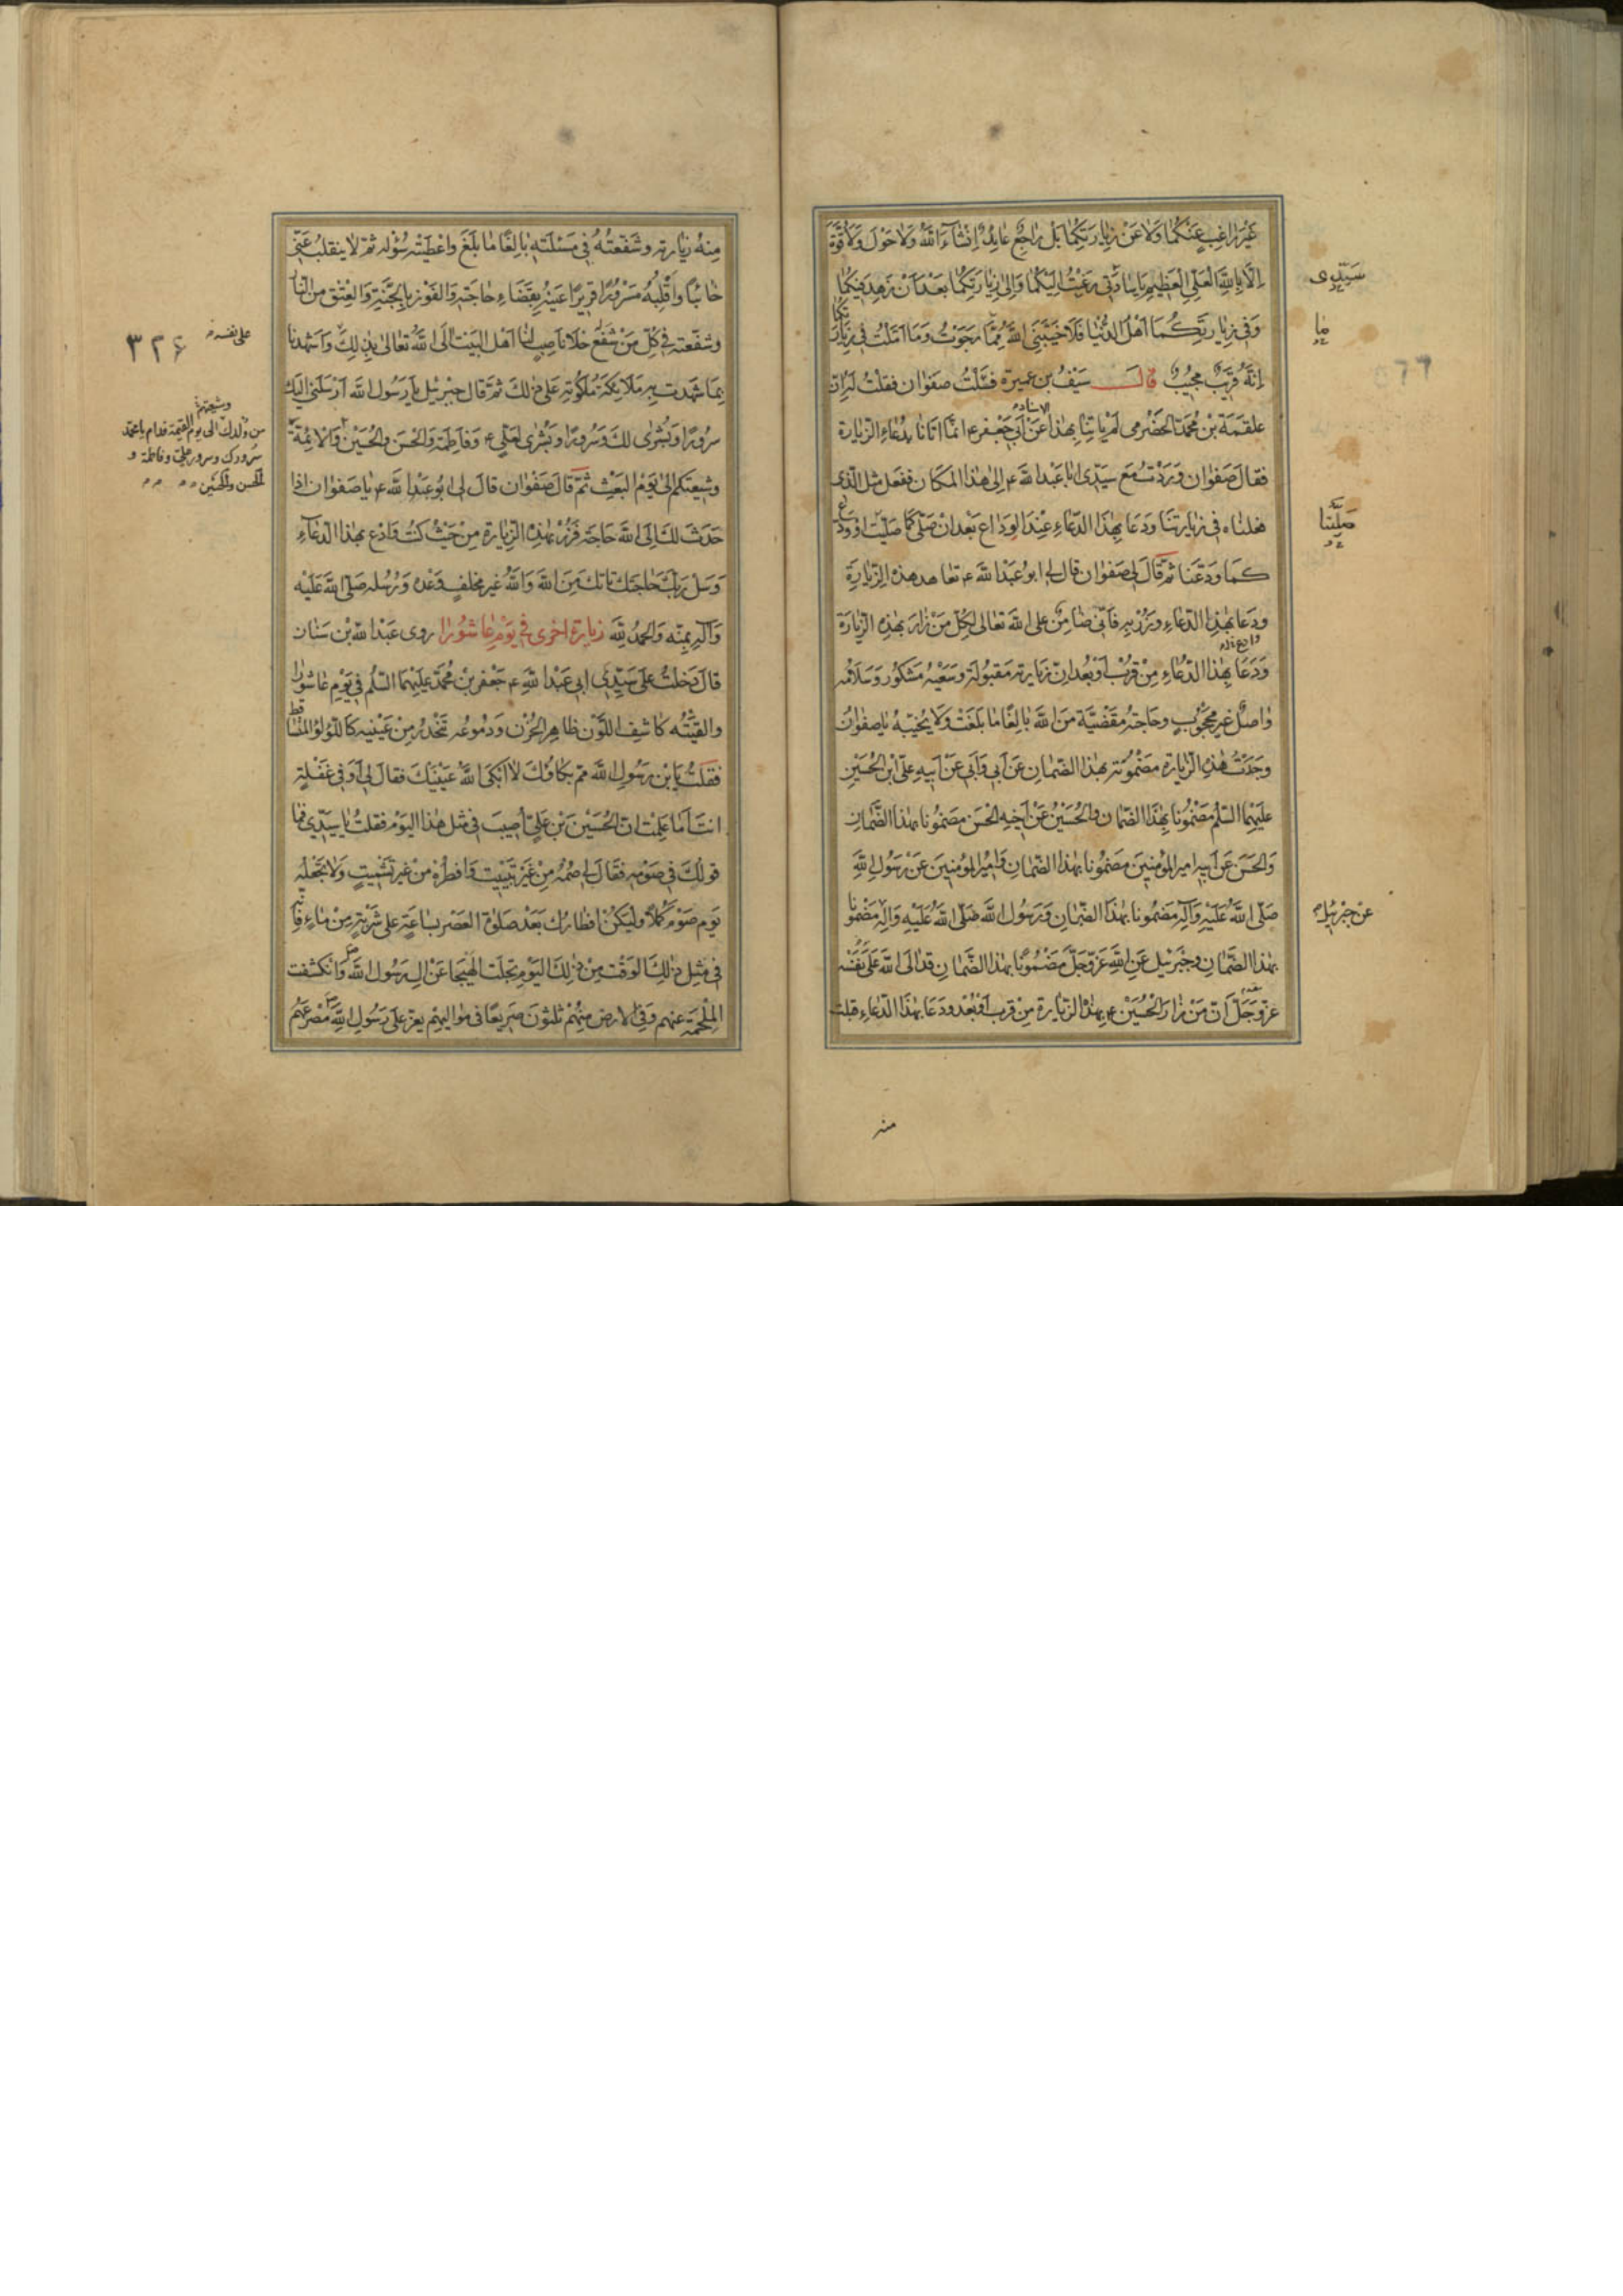 غَيْرَ رَاغِبٍ عَنْكُمَا وَلَا عَنْ زِيَارَتِكُمَا بَلْ رَاجِعٌ عَايِدٌ اِنْشَآءَ اللّٰهُ وَلَا حَوْلَ وَلَا قُوَّةَ
اِلَّا بِاللّٰهِ الْعَلِيِّ الْعَظِيمِ يَا سَادَتِي رَغِبْتُ اِلَيْكُمَا وَاِلىٰ زِيَارَتِكُمَا بَعْدَ اَنْ زَهِدَ فِيكُمَا
وَفِي زِيَارَتِكُمَا اَهْلُ الدُّنْيَا فَلَا خَيَّبَنِيَ اللّٰهُ مِمَّا رَجَوْتُ وَمَا اَمَّلْتُ فِي زِيَارَتِكُمَا
اِنَّهُ قَرِيبٌ مُجِيبٌ قال سَيْفُ بن عميرة فسَئَلْتُ صفوان فقلتُ لَه اِنَّ
علقمَة بْن مُحمّد الحَضْرمي لم يَاتِنَا بهٰذا عَنْ اَبي جَعْفر ع انّما اتَانَا بِدُعَاءِ الزيارة
فقالَ صَفوان وَرَدْتُ مَعَ سَيّدى ابا عَبْدِ اللّٰه ع اِلىٰ هٰذا المَكان ففعَل مثل الّذى
فعلناه فى زيارتنَا ودَعَا بِهٰذَا الدّعَاءِ عِنْدَ الوَداع بَعْد انْ صَلّى كمَا صَلّيْت اوودّع
كمَا ودّعْنَا ثمّ قَالَ لى صَفوان قال لى ابو عَبْد اللّٰه ع تعاهد هذه الزّيارَةَ
ودَعَا بِهٰذا الدّعاءِ وَزُرْ به فَانّى ضَامِنٌ على اللّٰه تعالى لكُلّ مَنْ زَارَ بهٰذِهِ الزّيارَة
وَدَعَا بِهٰذا الدّعَاءِ مِنْ قُرْبٍ اَوْ بُعْدٍ انّ زيَارته مَقبُولَة وَسَعْيُه مَشكُور وَسَلَامُه
وَاصِلٌ غير مَحْجُوبٍ وحَاجَتهُ مقضيَّة مِنَ اللّٰه بَالِغًا مَا بَلَغَتْ وَلَا يُخَيِّبُهُ يا صفوانُ
وجَدْتُ هٰذِهِ الزّيَارة مَضْمُونَة بهٰذا الضّمانِ عَنْ اَبي وَاَبي عَنْ اَبيهِ علىّ ابْنِ الحُسَيْنِ
عليهما السّلم مَضْمُونا بِهٰذا الضّمان والحُسَيْنُ عَنْ اَخيهِ الحَسَنِ مضمُونا بهٰذا الضّمانِ
وَالحَسَنُ عَنْ اَبيهِ اميرِ المؤمنينَ مضمُونا بهٰذا الضّمانِ وَاميرُ المؤمنينَ عَنْ رَسُولِ اللّٰهِ
صَلّى اللّٰهُ عَلَيْهِ وَآلِهِ مَضمُونا بهٰذا الضّمانِ وَرَسُول اللّٰه صَلّى اللّٰهُ عَلَيْهِ وَآلِهِ مَضْمُونا
بهٰذا الضّمَانِ وجَبْرَئيل عَنِ اللّٰهِ عَزّوَجَلّ مَضْمُونا بهٰذا الضّمانِ قد آلَى اللّٰهُ عَلىٰ نَفْسِه
عزّوجَلّ اَنّ مَنْ زَارَ الحُسَيْنَ ع بِهٰذِهِ الزّيارة مِنْ قربٍ اَوْ بُعْدٍ ودَعَا بهٰذا الدّعاءِ قبلت
سَيّدى
ما
صَلَّيْنَا
عن جبرئيل
منه
مِنهُ زيَارته وشَفّعتُهُ فى مَسْئَلَتِه بَالِغًا مَا بَلَغَ وَاعْطَيْتُه سُؤْلَه ثمّ لا ينقلبُ عَنّى
خَائبًا وَاَقْلِبُهُ مَسْرُورًا قريرًا عَيْنُه بِقَضَاءِ حَاجَتِهِ وَالفَوْزِ بِالْجَنَّةِ وَالعِتْقِ مِنَ النّار
وشفّعته فى كُلّ مَنْ شَفَعَ خَلَا نَاصِبٍ لنا اَهْل البَيْتِ آلَى اللّٰهُ تعَالىٰ بذٰلِكَ وَاَشْهَدَنا
بِمَا شهدت به مَلَائِكَةُ مَلكُوتِهِ عَلىٰ ذٰلكَ ثمّ قال جبرئيل يا رَسُول اللّٰه اَرْسَلَنى اليَك
سرُورًا وَبُشْرىٰ لكَ وَسُرورًا وبُشرىٰ لِعَلِيّ ع وَفاطِمَة وَالحَسَنِ وَالحُسَيْنِ وَالائِمَّة
وشيعتكم الىٰ يَوم البَعْث ثمّ قالَ صَفْوان قالَ لى ابو عَبْدِ اللّٰه ع يا صَفوان اذا
حَدَثَ لكَ اِلَى اللّٰه حَاجَة فَزُرْ بهٰذِهِ الزّيارة مِنْ حَيْثُ كنتَ وَادْع بهٰذا الدّعَاءِ
وَسَلْ رَبّكَ حَاجَتَكَ تَاتِكَ مِنَ اللّٰه وَاللّٰهُ غير مخلفٍ وَعْدَه وَرُسُله صَلّى اللّٰهُ عَلَيْه
وَآلِه بِمَنّه وَالحمْدُ لِلّٰه زيارة اخرى فى يَوْم عَاشُورا روى عَبْد اللّٰه بْن سَنان
قالَ دَخلتُ علىٰ سَيّدى ابى عَبْد اللّٰه ع جَعْفر بْن مُحمّد عليهما السّلم فى يَوْم عاشورا
والفَيْتُه كاشِفَ اللّوْن ظاهِر الحُزْن ودُمُوعُه تَنْحَدِرُ مِنْ عَيْنَيه كاللّؤلؤ المتساقط
فقلتُ يَا ابْن رَسُول اللّٰه ممّ بكاؤكَ لا اَبْكَى اللّٰهُ عَيْنَيْكَ فقالَ لى اَوَفى غَفْلةٍ
انتَ اَمَا عَلِمْتَ انّ الحُسَيْنَ بْن عَلىّ اُصيبَ فى مثل هٰذا اليَوْم فقلتُ يا سَيّدى فما
قولكَ فى صَوْمِه فقَالَ لى صُمْهُ مِنْ غَيْر تَبْييت وَافطُرْه مِنْ غَير تَشْميتٍ وَلَا تَجْعَلْه
يَوم صَوْم كمَلًا وليَكُنْ افطارك بَعْد صَلوٰة العَصْر بسَاعَةٍ على شَرْبَةٍ مِنْ مَاءٍ فَانّه
فى مثِل ذٰلِكَ الوَقْت مِنْ ذٰلِكَ اليَوْم تَجَلّت الهَيْجَا عَنْ اٰلِ رَسُولِ اللّٰه ص وَانكشفت
المَلْحَمَة عَنهم وَفى الارض مِنْهُمْ ثلثونَ صَريعًا فى مَواليهم يعزّ على رَسُول اللّٰه ص مَصْرَعُهُمْ
على نفسه
٣٢۶
وشيعتهم
من ولدك الى يوم القيمة فدام يا محمد
سرورك وسرور على وفاطمة و
الحسن والحسين